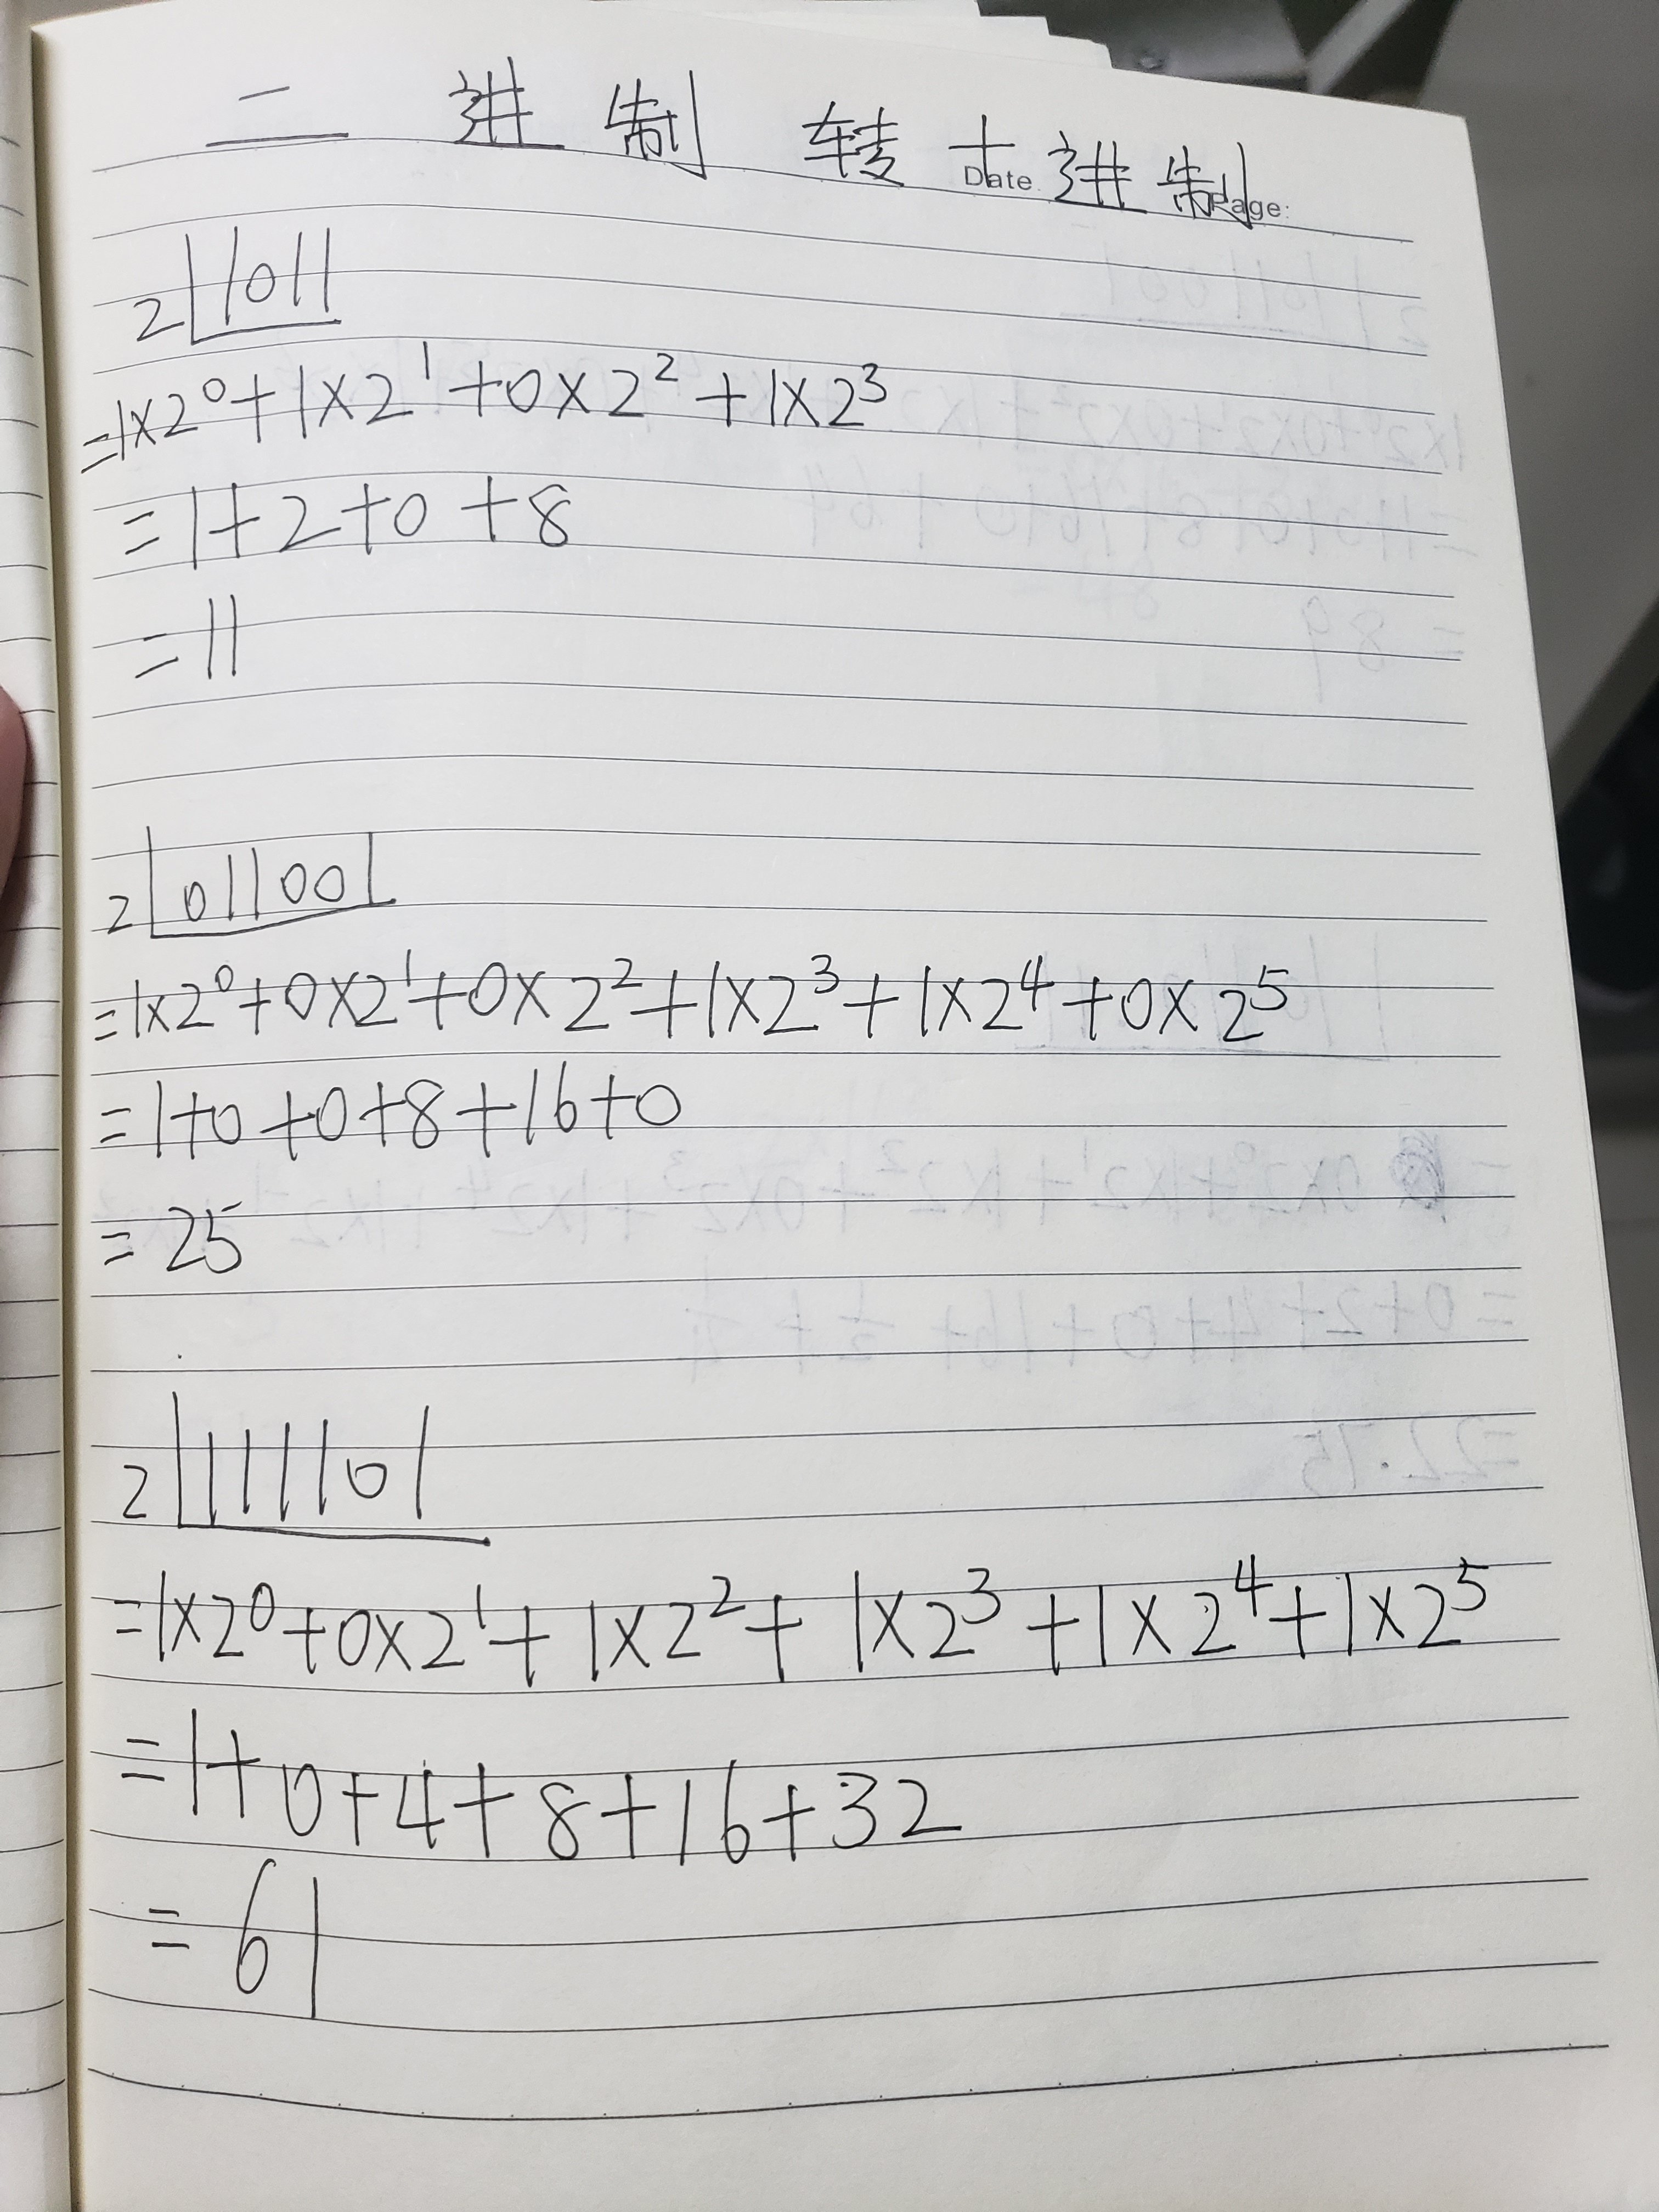 二进制 转十进制
Date. Page:
2|1011
=1×2⁰+1×2¹+0×2²+1×2³
=1+2+0+8
=11
2|011001
=1×2⁰+0×2¹+0×2²+1×2³+1×2⁴+0×2⁵
=1+0+0+8+16+0
=25
2|111101
=1×2⁰+0×2¹+1×2²+1×2³+1×2⁴+1×2⁵
=1+0+4+8+16+32
=61